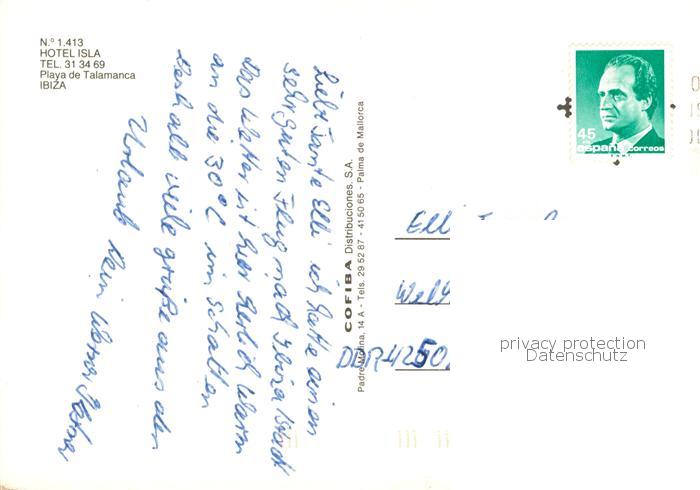 N.º 1.413
HOTEL ISLA
TEL. 31 34 69
Playa de Talamanca
IBIZA
Liebe Tante Elli ich hatte einen
sehr guten Flug nach Ibiza Stadt
das Wetter ist hier herlich warm
an die 30°C im Schatten
deshalb viele grüße aus den
Urlaub Dein Werner
COFIBA Distribuciones, S.A.
Padre Molina, 14 A - Tels. 29 52 87 - 41 50 65 - Palma de Mallorca
45
españa correos
Elli
DDR-4250
privacy protection
Datenschutz